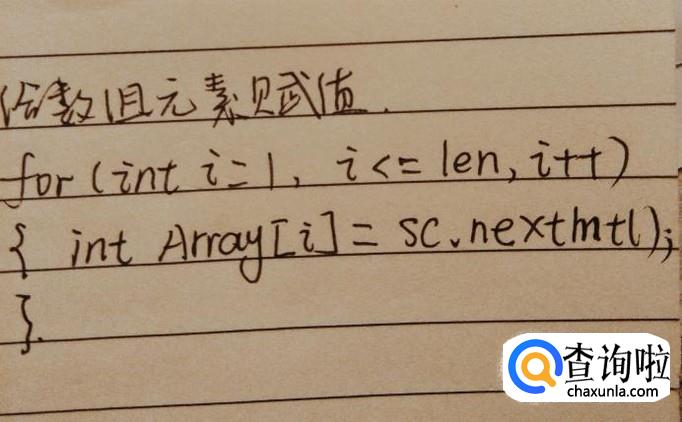 给数组元素赋值.
for (int i=1, i<=len, i++)
{ int Array[i] = sc.nextInt();
}.
查询啦
chaxunla.com